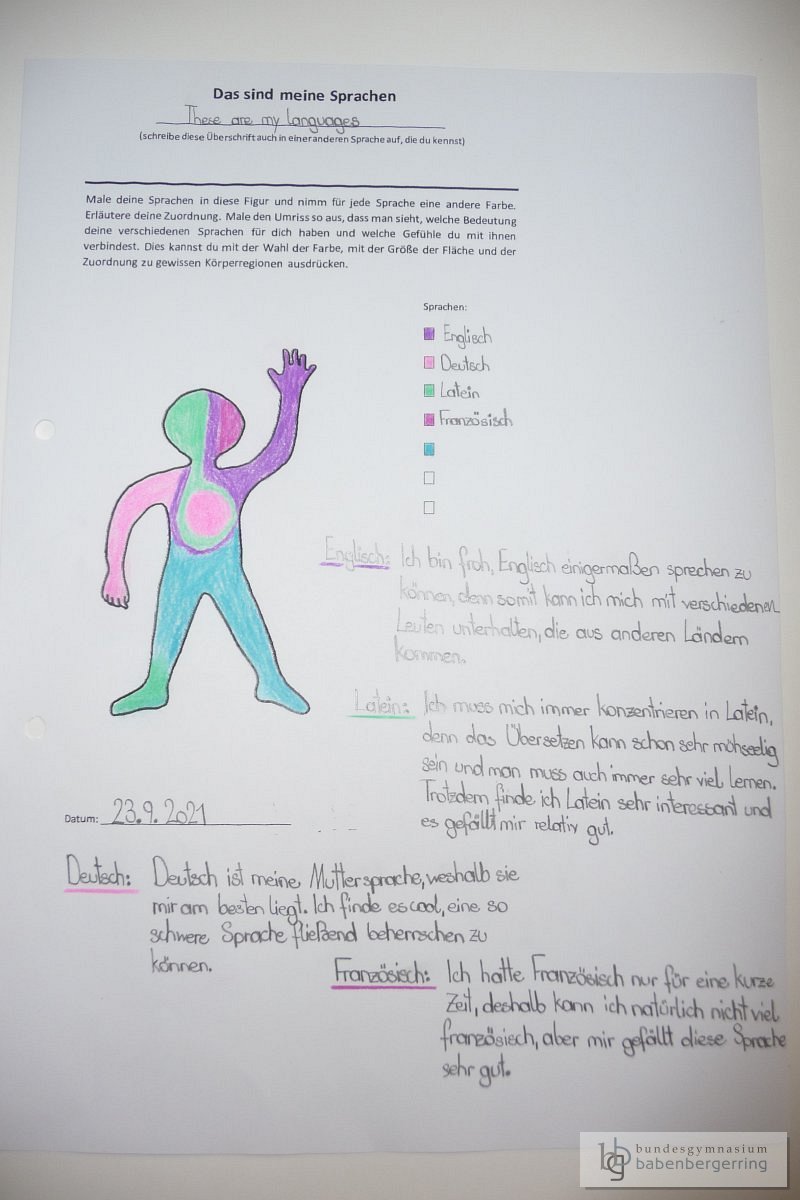 Das sind meine Sprachen
These are my languages
(schreibe diese Überschrift auch in einer anderen Sprache auf, die du kennst)
Male deine Sprachen in diese Figur und nimm für jede Sprache eine andere Farbe.
Erläutere deine Zuordnung. Male den Umriss so aus, dass man sieht, welche Bedeutung
deine verschiedenen Sprachen für dich haben und welche Gefühle du mit ihnen
verbindest. Dies kannst du mit der Wahl der Farbe, mit der Größe der Fläche und der
Zuordnung zu gewissen Körperregionen ausdrücken.
Sprachen:
Englisch
Deutsch
Latein
Französisch
Englisch: Ich bin froh, Englisch einigermaßen sprechen zu
können, denn somit kann ich mich mit verschiedenen
Leuten unterhalten, die aus anderen Ländern
kommen.
Latein: Ich muss mich immer konzentrieren in Latein,
denn das Übersetzen kann schon sehr mühseelig
sein und man muss auch immer sehr viel lernen.
Trotzdem finde ich Latein sehr interessant und
es gefällt mir relativ gut.
Datum: 23.9.2021
Deutsch: Deutsch ist meine Muttersprache, weshalb sie
mir am besten liegt. Ich finde es cool, eine so
schwere Sprache fließend beherrschen zu
können.
Französisch: Ich hatte Französisch nur für eine kurze
Zeit, deshalb kann ich natürlich nicht viel
französisch, aber mir gefällt diese Sprache
sehr gut.
bg bundesgymnasium
babenbergerring